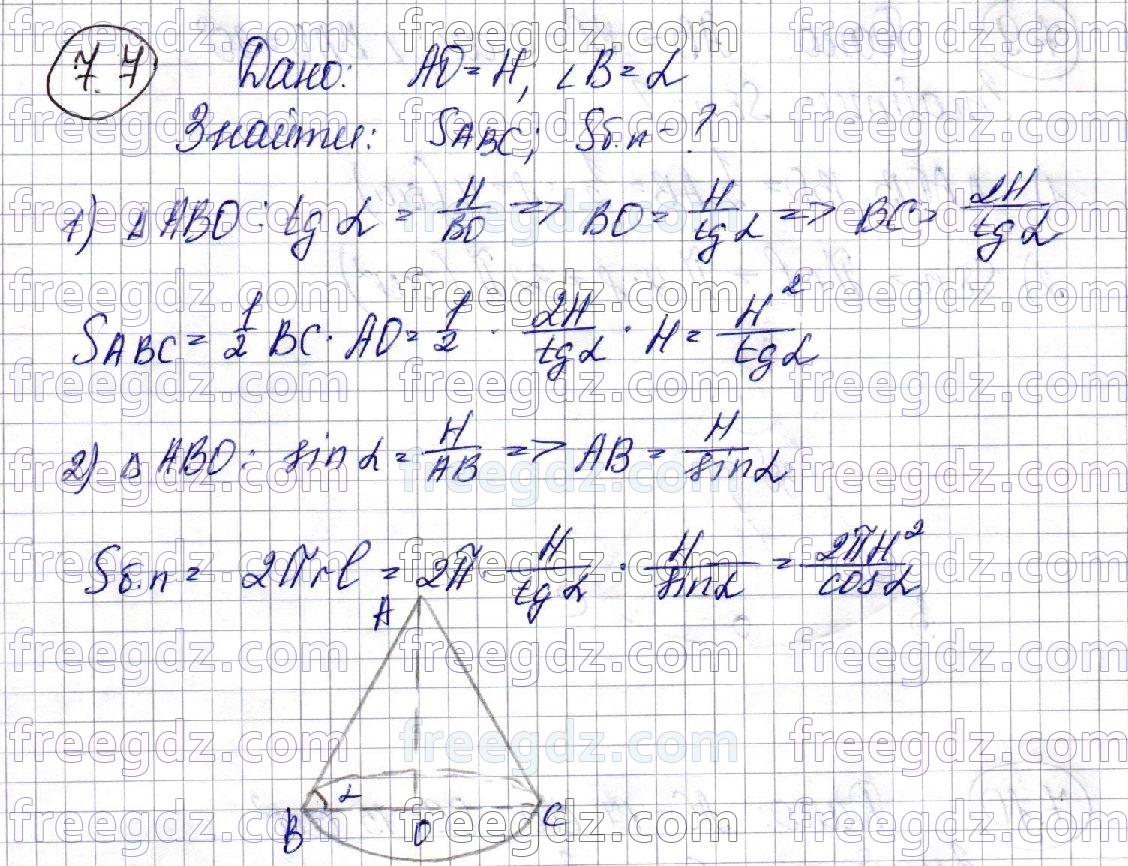 7.4 Дано: AO = H, ∠B = α
Знайти: S_ABC; Sб.п - ?
1) Δ ABO: tg α = H/BO => BO = H/tg α => BC = 2H/tg α
S_ABC = 1/2 BC · AO = 1/2 · 2H/tg α · H = H²/tg α
2) Δ ABO: sin α = H/AB => AB = H/sin α
Sб.п = 2πrl = 2π · H/tg α · H/sin α = 2πH²/cos α
A
α
B O C
freegdz.com